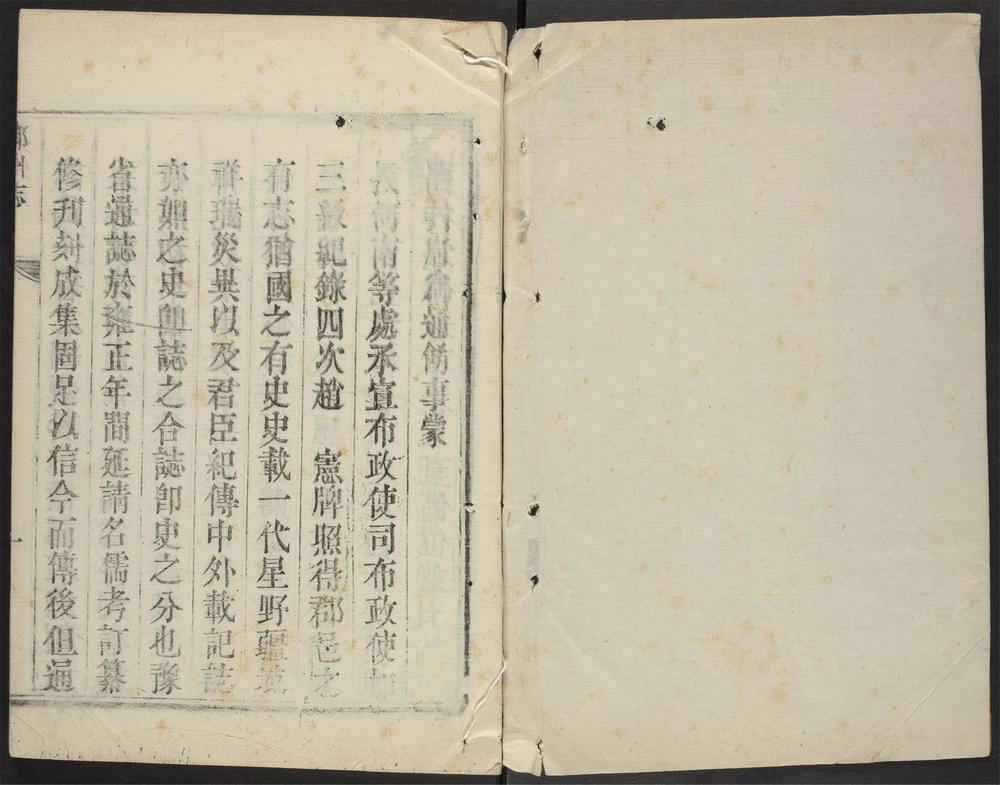 通飭事蒙
河南等處承宣布政使司布政使加
三級紀錄四次趙　憲牌照得郡邑之
有志猶國之有史史載一代星野疆域
祥瑞災異以及君臣紀傳中外載記誌
亦如之史與誌之合誌卽史之分也豫
省通誌於雍正年間延請名儒考訂纂
修刊刻成集固足以信今而傳後但通
州志
一